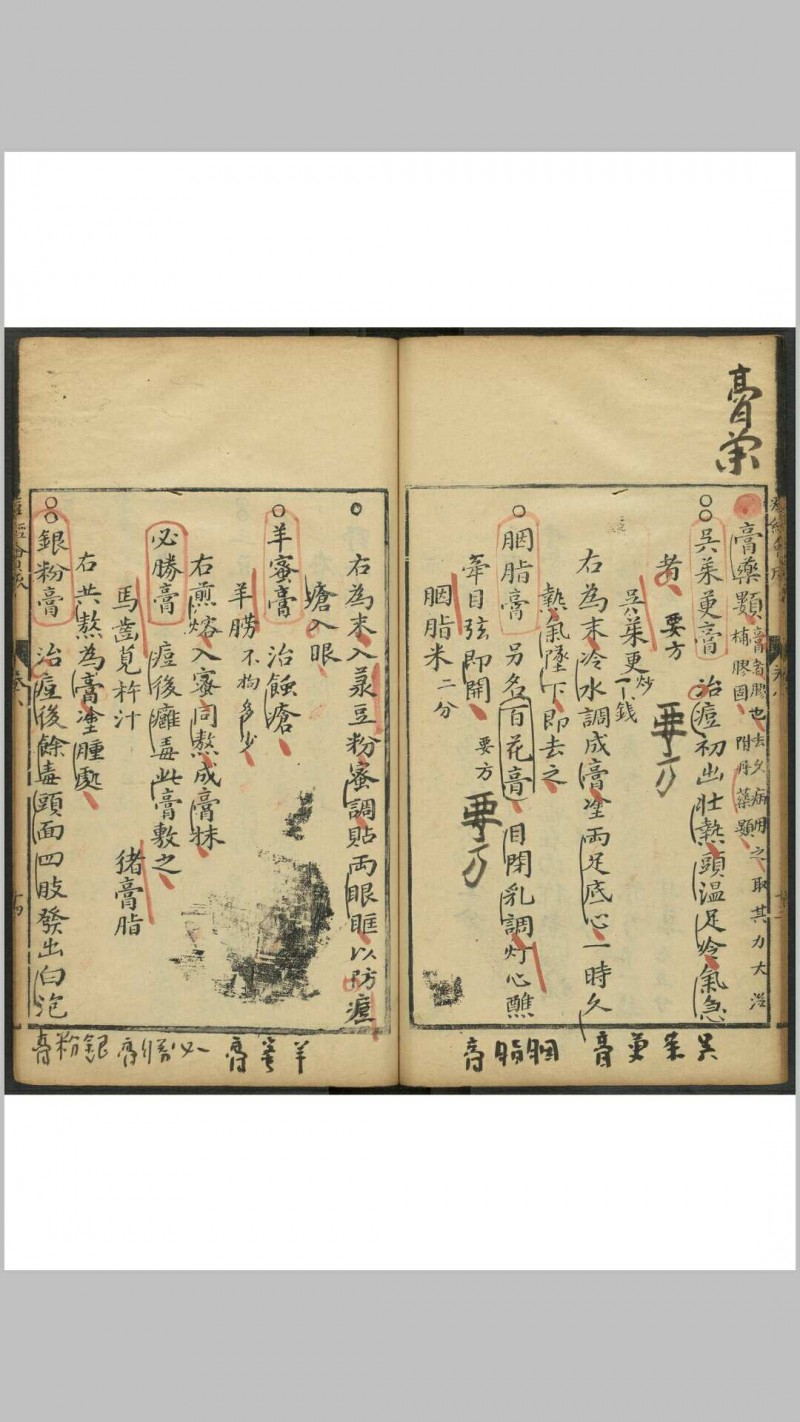 膏藥
膏藥類 膏者膠也去久病用之取其力大滋
補膠固 附丹藥類
吳茱萸膏 治痘初出壯熱頭温足冷氣急
者 要方 要方
吳茱萸 炒 一錢
右為末冷水調成膏塗両足底心一時久
熱氣墜下即去之
胭脂膏 另名百花膏 目閉乳調灯心蘸
牽目弦即開 要方 要方
胭脂米 二分
右為末入菉豆粉蜜調貼両眼眶以防痘
瘡入眼
羊蜜膏 治蝕瘡
羊䏝 不拘多少
右煎熔入蜜同熬成膏抹
必勝膏 痘後癰毒此膏敷之
馬齒莧杵汁 猪膏脂
右共熬為膏塗腫處
銀粉膏 治痘後餘毒頭面四肢發出白泡
吳茱萸膏
胭脂膏
羊蜜膏
必勝膏
銀粉膏